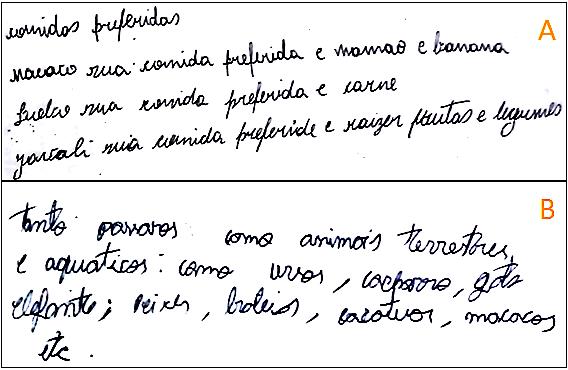 comidas preferidas
A
macaco sua comida preferida e mamao e banana
sua comida preferida e carne
javali sua comida preferide e raizer frutas e legumes
B
tanto passaros como animais terrestres,
e aquaticos: como ursos, cachorro, gato
elefante; peixes, baleias, macacos
etc.